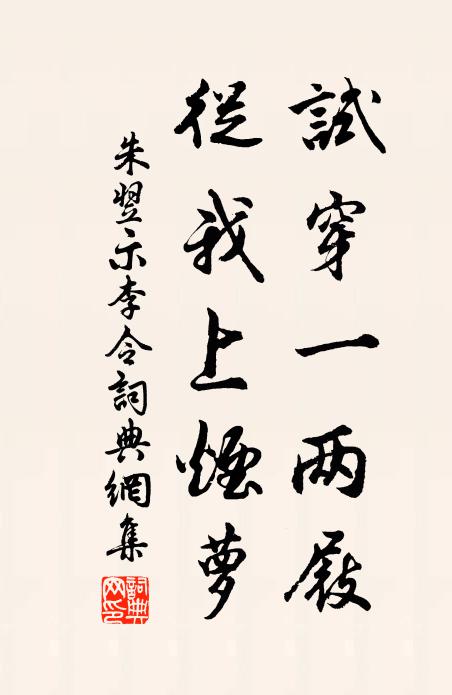 試穿一两屐
從我上煙萝
朱翌示李令詞典網集
詞典网印